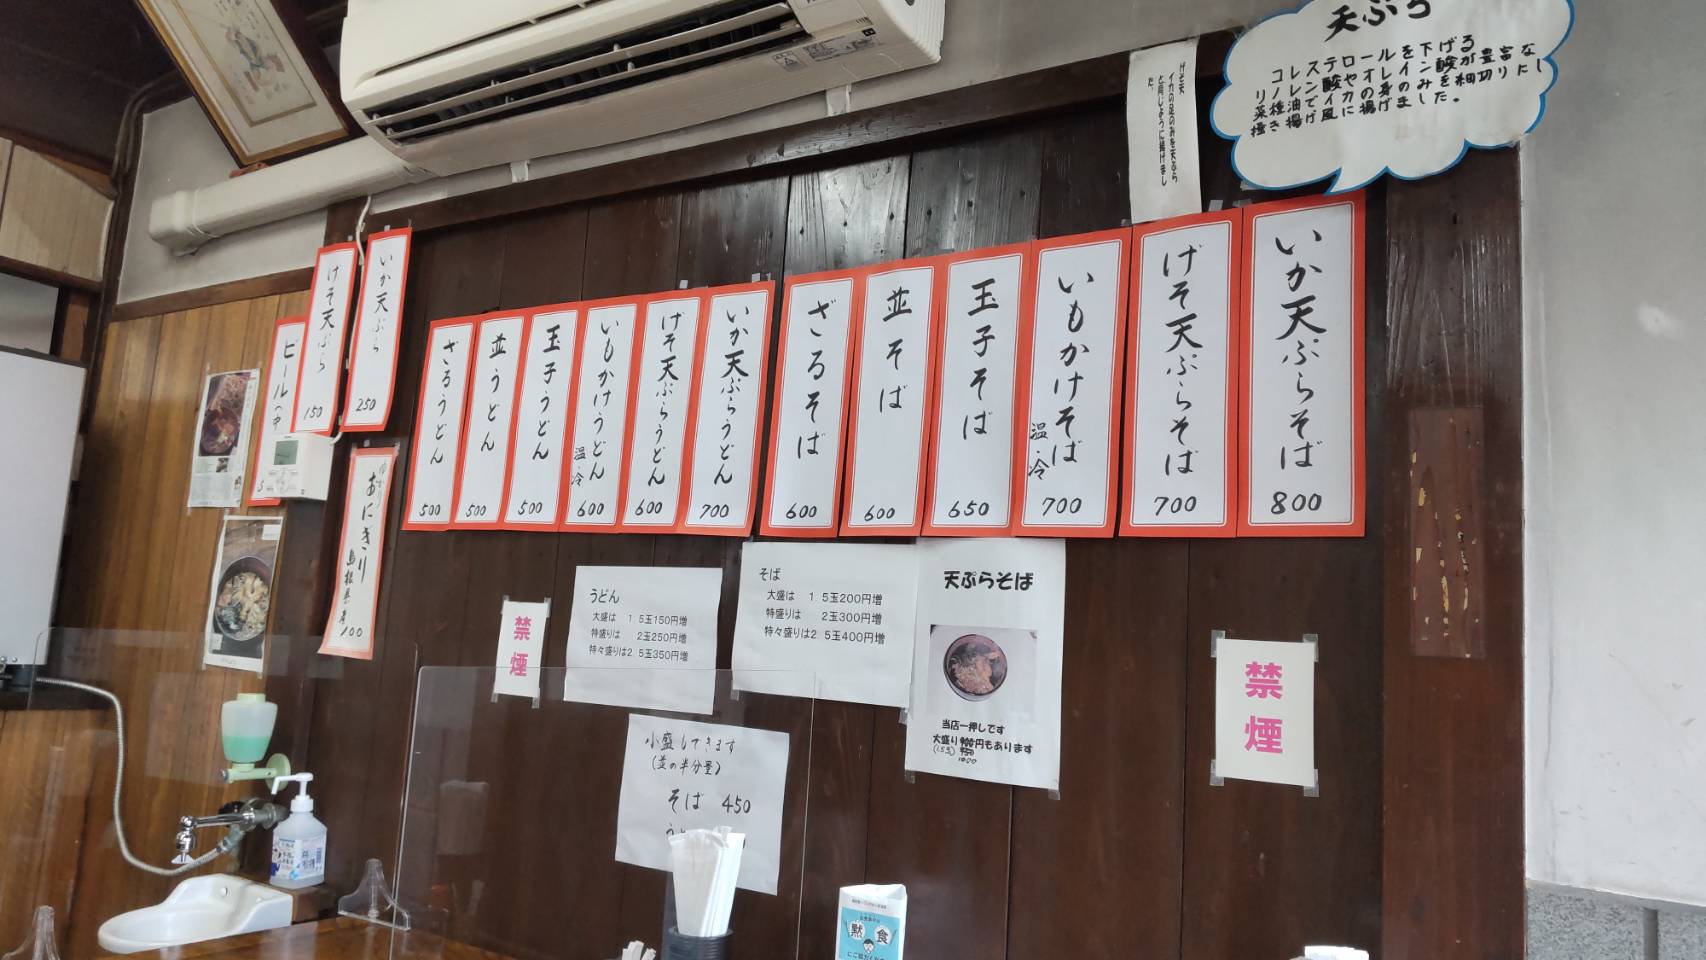 天ぷら
コレステロールを下げる
リノレン酸やオレイン酸が豊富な
菜種油でイカの身のみを細切りにし
掻き揚げ風に揚げました。
げそ天
イカの足のみを天ぷら
と同じように揚げまし
た。
いか天ぷらそば 800
げそ天ぷらそば 700
いもかけそば 温・冷 700
玉子そば 650
並そば 600
ざるそば 600
いか天ぷらうどん 700
げそ天ぷらうどん 600
いもかけうどん 温・冷 600
玉子うどん 500
並うどん 500
ざるうどん 500
いか天ぷら 250
げそ天ぷら 150
ビール(中
おにぎり
島根県産
うどん
大盛は 1.5玉150円増
特盛りは 2玉250円増
特々盛りは2.5玉350円増
そば
大盛は 1.5玉200円増
特盛りは 2玉300円増
特々盛りは2.5玉400円増
天ぷらそば
当店一押しです
大盛り900円もあります
(1.5玉) 950
1000
禁煙
禁煙
小盛しできます
(並の半分量)
そば 450
黙食